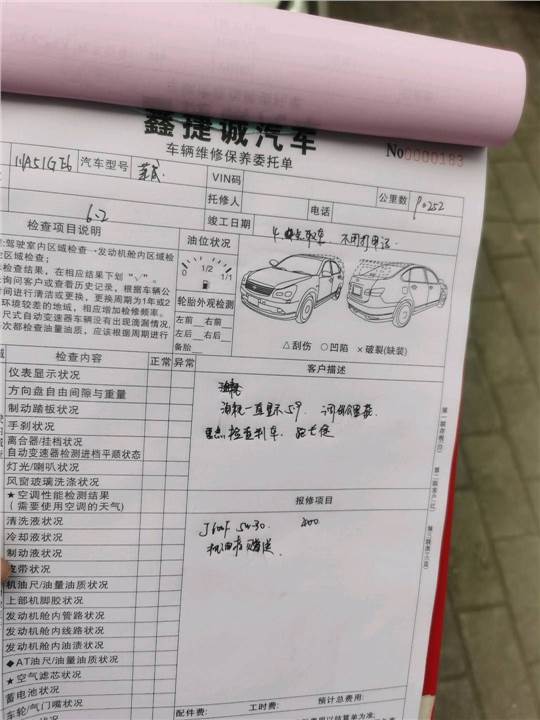 鑫捷诚汽车
车辆维修保养委托单
No0000183
汽车型号
VIN码
公里数
托修人
电话
6-2
竣工日期
不用打电话
检查项目说明
油位状况
:驾驶室内区域检查→发动机舱内区域检
区域检查;
检查结果,在相应结果下划“√”,
询问客户或查看历史记录,根据车辆公
间进行清洁或更换,更换周期为1年或2
环境较差的地域,相应增加检修频率。
尺式自动变速器车辆没有出现泄漏情况,
次都检查油量油质,应该根据周期进行
0 1/2 1/1
轮胎外观检测
左前 右前
左后 右后
备胎
△刮伤 ○凹陷 ×破裂(缺装)
检查内容 正常 异常
客户描述
仪表显示状况
方向盘自由间隙与重量
制动踏板状况
手刹状况
离合器/挂档状况
自动变速器检测进档平顺状态
灯光/喇叭状况
风窗玻璃洗涤状况
★空调性能检测结果
(需要使用空调的天气)
清洗液状况
冷却液状况
制动液状况
皮带状况
机油尺/油量油质状况
上部机脚胶状况
发动机舱内管路状况
发动机舱内线路状况
发动机舱内油渍状况
◆AT油尺/油量油质状况
★空气滤芯状况
蓄电池状况
车轮/气门嘴状况
状况
油耗一直显示5.9
检查刹车
报修项目
5W-30
400
赠送
配件费: 工时费: 预计总费用: